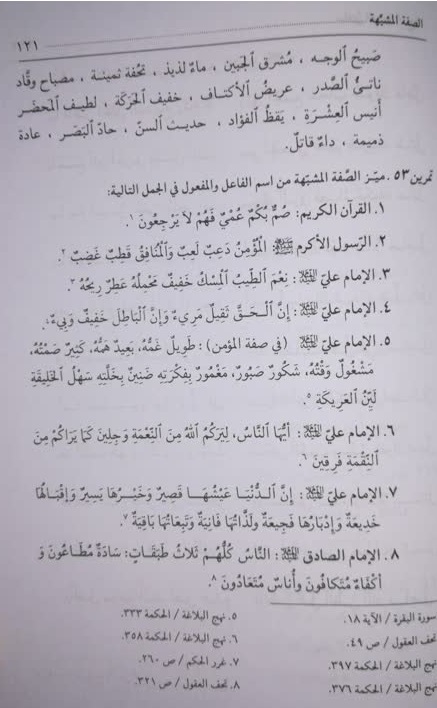 الصفة المشبّهة
١٢١
صَبيحُ الوجـه ، مُشرق الجَبين ، ماءٌ لذيذ ، تحُفة ثمينـة ، مصباح وقّاد
ناتئُ الصَّدر ، عريضُ الأكتـاف ، خفيف الحَرَكة ، لطيـف المَحضَر
أنيس العِشْـرَة ، يَقظُ الفؤاد ، حديـث السنّ ، حادّ البَصَر ، عادة
ذميمة ، داءٌ قاتلٌ.
تمرين ٥٣. ميّـز الصّفة المشبّهة من اسم الفاعل والمفعول في الجمل التالية:
١. القرآن الكريم: صُمٌّ بُكْمٌ عُمْيٌ فَهُمْ لاَ يَرْجِعُونَ.١
٢. الرّسول الأكرم ﷺ: الْمُؤْمِنُ دَعِبٌ لَعِبٌ وَالْمُنَافِقُ قَطِبٌ غَضِبٌ.٢
٣. الإمام عليّ ؏: نِعْمَ الطِّيبُ الْمِسْكُ خَفِيفٌ مَحْمِلُهُ عَطِرٌ رِيحُهُ.٣
٤. الإمام عليّ ؏: إِنَّ الْـحَـقَّ ثَقِيلٌ مَرِيءٌ وَإِنَّ الْبَاطِلَ خَفِيفٌ وَبِيءٌ.٤
٥. الإمام عليّ ؏ (في صفة المؤمن): طَوِيلٌ غَمُّهُ، بَعِيدٌ هَمُّهُ، كَثِيرٌ صَمْتُهُ،
مَشْغُولٌ وَقْتُهُ، شَكُورٌ صَبُورٌ، مَغْمُورٌ بِفِكْرَتِهِ ضَنِينٌ بِخَلَّتِهِ سَهْلُ الْخَلِيقَةِ
لَيِّنُ الْعَرِيكَةِ.٥
٦. الإمام عليّ ؏: أَيُّهَا النَّاسُ، لِيَرَكُمُ اللهُ مِنَ النِّعْمَةِ وَجِلِينَ كَمَا يَرَاكُمْ مِنَ
النِّقْمَةِ فَرِقِينَ.٦
٧. الإمام عليّ ؏: إِنَّ الدُّنْيَا عَيْشُهَا قَصِيرٌ وَخَيْرُهَا يَسِيرٌ وَإِقْبَالُهَا
خَدِيعَةٌ وَإِدْبَارُهَا فَجِيعَةٌ وَلَذَّاتُهَا فَانِيَةٌ وَتَبِعَاتُهَا بَاقِيَةٌ.٧
٨. الإمام الصادق ؏: النَّاسُ كُلُّهُمْ ثَلَاثُ طَبَقَاتٍ: سَادَةٌ مُطَاعُونَ وَ
أَكْفَاءٌ مُتَكَافُونَ وَأُنَاسٌ مُتَعَادُونَ.٨
سورة البقرة / الآية ١٨.
تحف العقول / ص ٤٩.
نهج البلاغة / الحكمة ٣٩٧.
نهج البلاغة / الحكمة ٣٧٦.
٥. نهج البلاغة / الحكمة ٣٣٣.
٦. نهج البلاغة / الحكمة ٣٥٨.
٧. غرر الحكم / ص ٢٦٠.
٨. تحف العقول / ص ٣٢١.